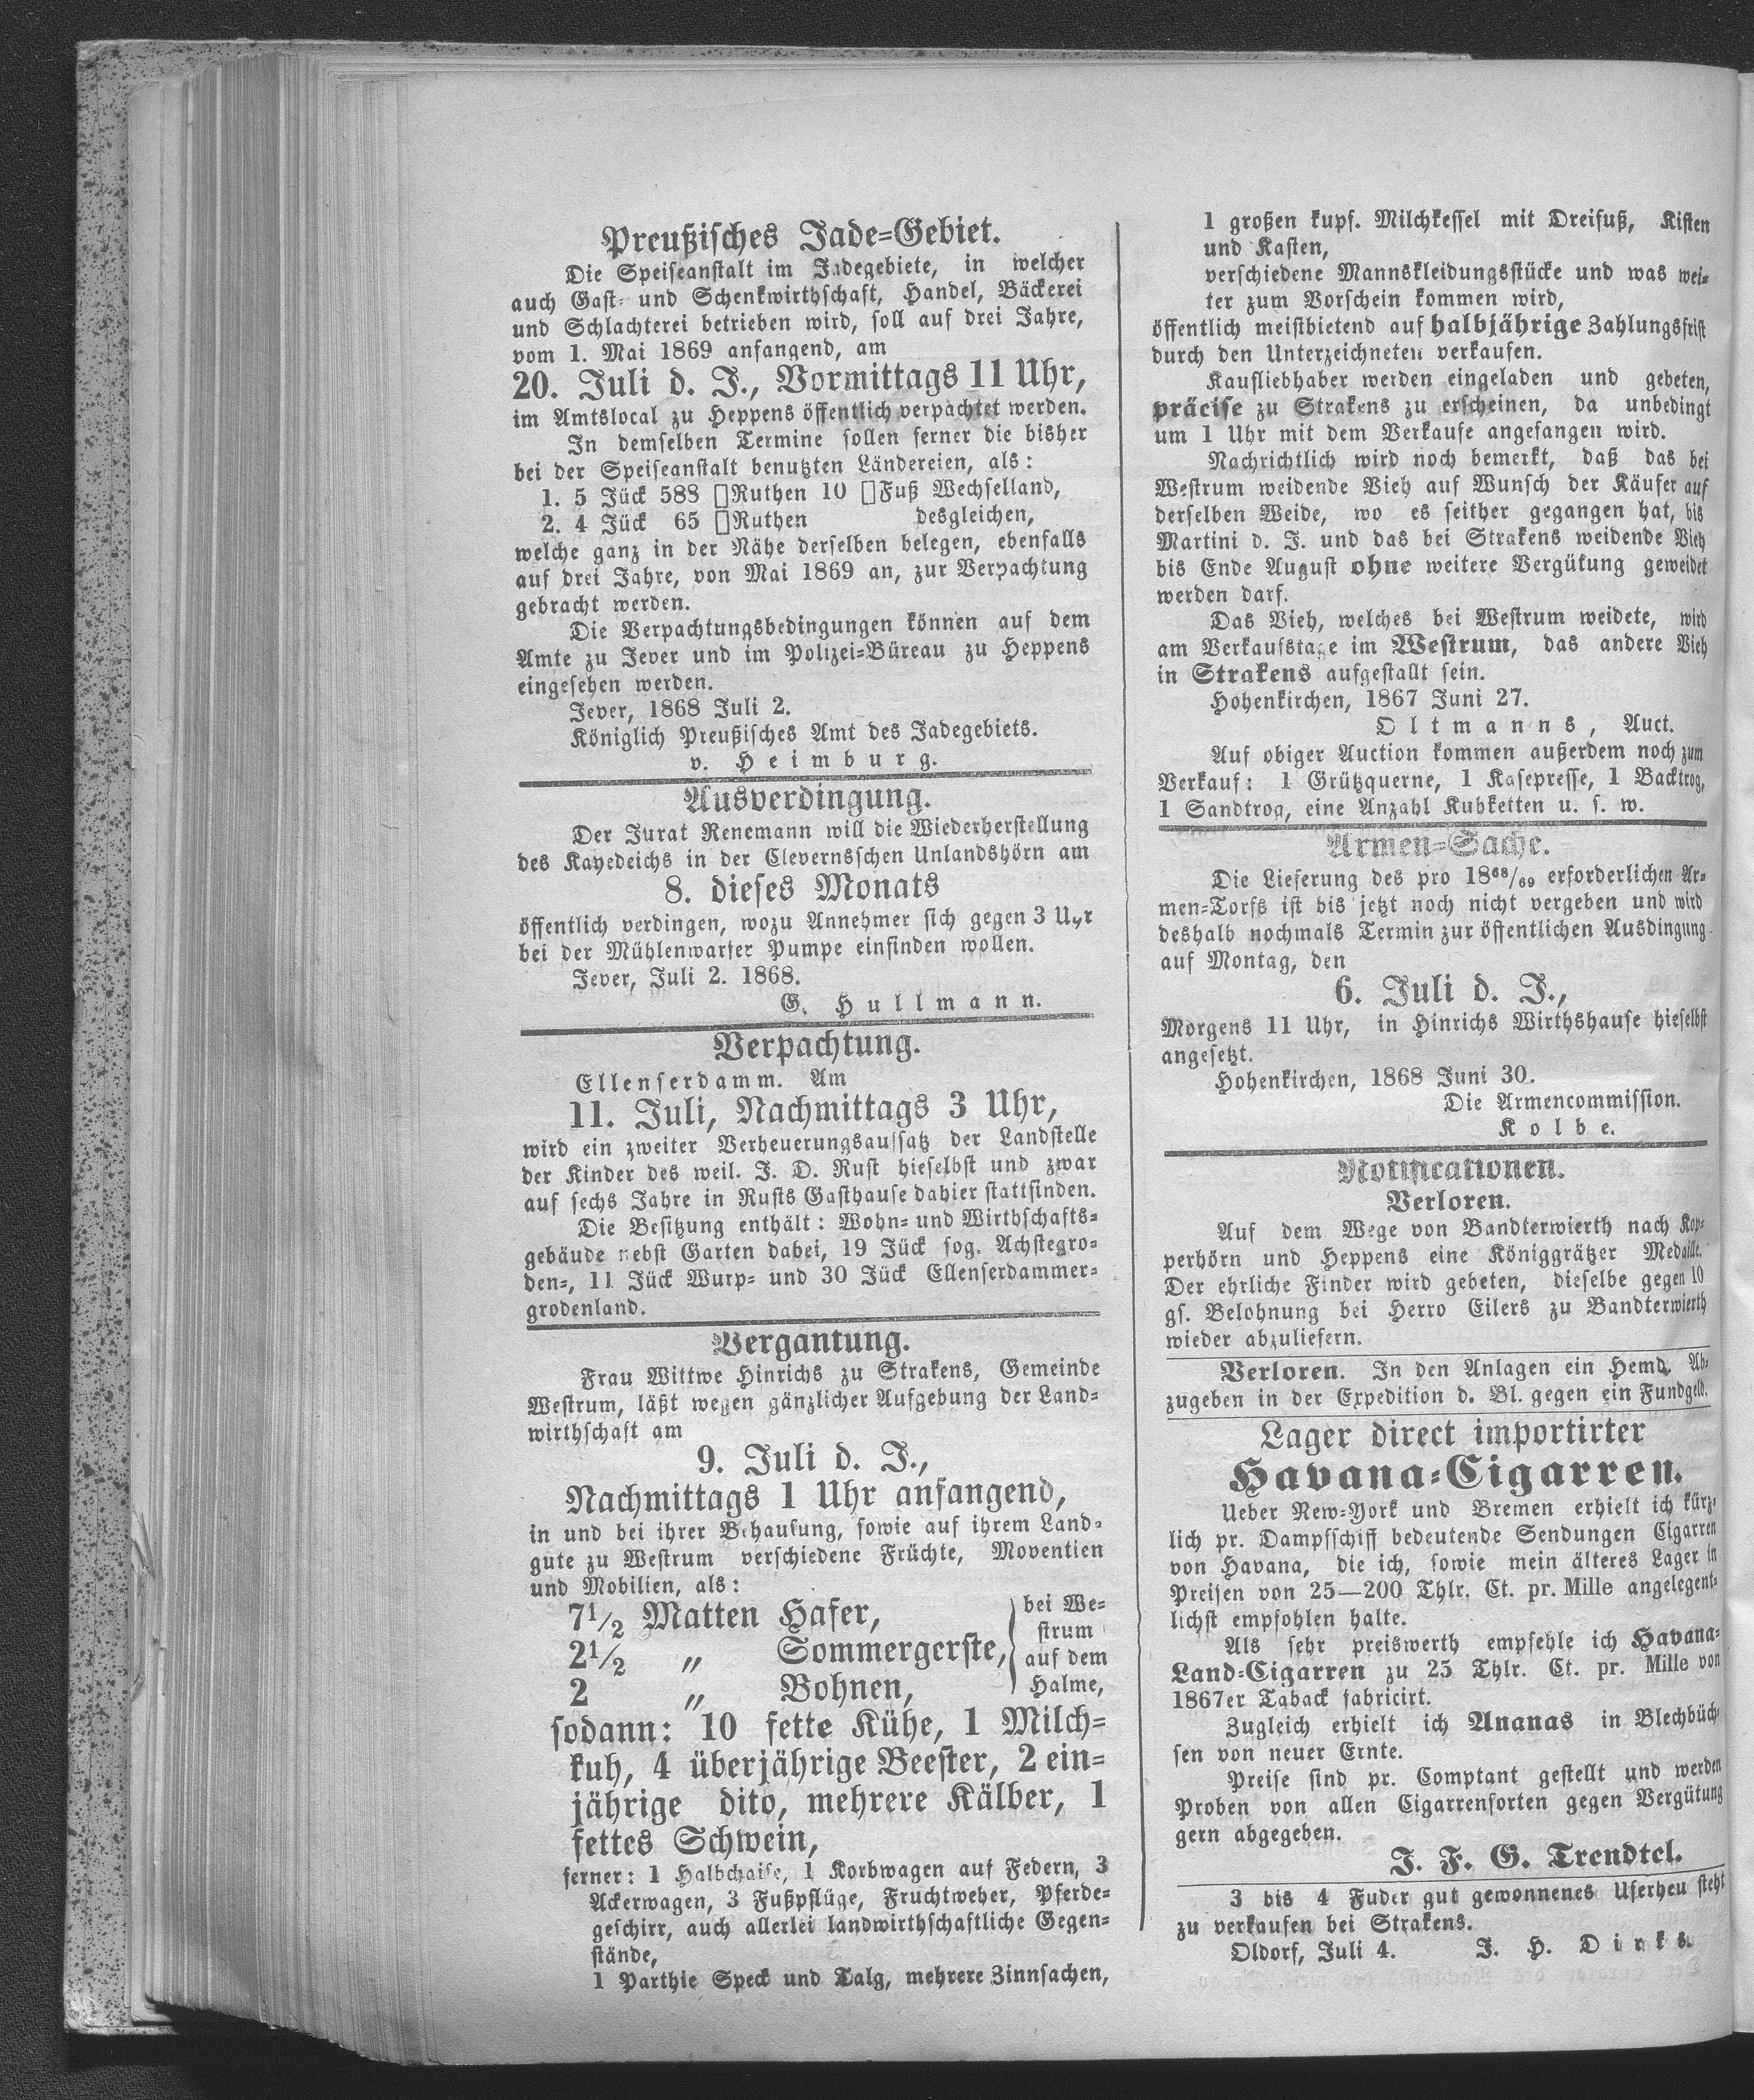 Preußisches Jade-Gebiet.
Die Speiseanstalt im Jadegebiete, in welcher
auch Gast- und Schenkwirthschaft, Handel, Bäckerei
und Schlachterei betrieben wird, soll auf drei Jahre,
vom 1. Mai 1869 anfangend, am
20. Juli d. J., Vormittags 11 Uhr,
im Amtslocal zu Heppens öffentlich verpachtet werden.
In demselben Termine sollen ferner die bisher
bei der Speiseanstalt benutzten Ländereien, als:
1. 5 Jück 588 □Ruthen 10 □Fuß Wechselland,
2. 4 Jück 65 □Ruthen desgleichen,
welche ganz in der Nähe derselben belegen, ebenfalls
auf drei Jahre, von Mai 1869 an, zur Verpachtung
gebracht werden.
Die Verpachtungsbedingungen können auf dem
Amte zu Jever und im Polizei-Büreau zu Heppens
eingesehen werden.
Jever, 1868 Juli 2.
Königlich Preußisches Amt des Jadegebiets.
v. Heimburg.
Ausverdingung.
Der Jurat Renemann will die Wiederherstellung
des Kayedeichs in der Clevernsschen Unlandshörn am
8. dieses Monats
öffentlich verdingen, wozu Annehmer sich gegen 3 Uhr
bei der Mühlenwarfer Pumpe einfinden wollen.
Jever, Juli 2. 1868.
G. Hullmann.
Verpachtung.
Ellenserdamm. Am
11. Juli, Nachmittags 3 Uhr,
wird ein zweiter Verheuerungsaufsatz der Landstelle
der Kinder des weil. J. D. Rust hieselbst und zwar
auf sechs Jahre in Rusts Gasthause dahier stattfinden.
Die Besitzung enthält: Wohn- und Wirthschafts-
gebäude nebst Garten dabei, 19 Jück sog. Achstegro-
den-, 11 Jück Wurp- und 30 Jück Ellenserdammer-
grodenland.
Vergantung.
Frau Wittwe Hinrichs zu Strakens, Gemeinde
Westrum, läßt wegen gänzlicher Aufgebung der Land-
wirthschaft am
9. Juli d. J.,
Nachmittags 1 Uhr anfangend,
in und bei ihrer Behausung, sowie auf ihrem Land-
gute zu Westrum verschiedene Früchte, Moventien
und Mobilien, als:
7½ Matten Hafer,
2½ „ Sommergerste,
2 „ Bohnen,
bei We-
strum
auf dem
Halme,
sodann: 10 fette Kühe, 1 Milch-
kuh, 4 überjährige Beester, 2 ein-
jährige dito, mehrere Kälber, 1
fettes Schwein,
ferner: 1 Halbchaise, 1 Korbwagen auf Federn, 3
Ackerwagen, 3 Fußpflüge, Fruchtweher, Pferde-
geschirr, auch allerlei landwirthschaftliche Gegen-
stände,
1 Parthie Speck und Talg, mehrere Zinnsachen,
1 großen kupf. Milchkessel mit Dreifuß, Kisten
und Kasten,
verschiedene Mannskleidungsstücke und was wei-
ter zum Vorschein kommen wird,
öffentlich meistbietend auf halbjährige Zahlungsfrist
durch den Unterzeichneten verkaufen.
Kaufliebhaber werden eingeladen und gebeten,
präcise zu Strakens zu erscheinen, da unbedingt
um 1 Uhr mit dem Verkaufe angefangen wird.
Nachrichtlich wird noch bemerkt, daß das bei
Westrum weidende Vieh auf Wunsch der Käufer auf
derselben Weide, wo es seither gegangen hat, bis
Martini d. J. und das bei Strakens weidende Vieh
bis Ende August ohne weitere Vergütung geweidet
werden darf.
Das Vieh, welches bei Westrum weidete, wird
am Verkaufstage im Westrum, das andere Vieh
in Strakens aufgestallt sein.
Hohenkirchen, 1867 Juni 27.
Oltmanns, Auct.
Auf obiger Auction kommen außerdem noch zum
Verkauf: 1 Grützquerne, 1 Kasepresse, 1 Backtrog,
1 Sandtrog, eine Anzahl Kuhketten u. s. w.
Armen-Sache.
Die Lieferung des pro 18⁶⁸/₆₉ erforderlichen Ar-
men-Torfs ist bis jetzt noch nicht vergeben und wird
deshalb nochmals Termin zur öffentlichen Ausdingung
auf Montag, den
6. Juli d. J.,
Morgens 11 Uhr, in Hinrichs Wirthshause hieselbst
angesetzt.
Hohenkirchen, 1868 Juni 30.
Die Armencommission.
Kolbe.
Notificationen.
Verloren.
Auf dem Wege von Bandterwierth nach Kop-
perhörn und Heppens eine Königgrätzer Medaille.
Der ehrliche Finder wird gebeten, dieselbe gegen 10
gs. Belohnung bei Herro Eilers zu Bandterwierth
wieder abzuliefern.
Verloren. In den Anlagen ein Hemd. Ab-
zugeben in der Expedition d. Bl. gegen ein Fundgeld.
Lager direct importirter
Havana-Cigarren.
Ueber New-York und Bremen erhielt ich kürz-
lich pr. Dampfschiff bedeutende Sendungen Cigarren
von Havana, die ich, sowie mein älteres Lager in
Preisen von 25—200 Thlr. Ct. pr. Mille angelegent-
lichst empfohlen halte.
Als sehr preiswerth empfehle ich Havana-
Land-Cigarren zu 25 Thlr. Ct. pr. Mille von
1867er Taback fabricirt.
Zugleich erhielt ich Ananas in Blechbüch-
sen von neuer Ernte.
Preise sind pr. Comptant gestellt und werden
Proben von allen Cigarrensorten gegen Vergütung
gern abgegeben.
J. F. G. Trendtel.
3 bis 4 Fuder gut gewonnenes Uferheu steht
zu verkaufen bei Strakens.
Oldorf, Juli 4. J. H. Dirks.